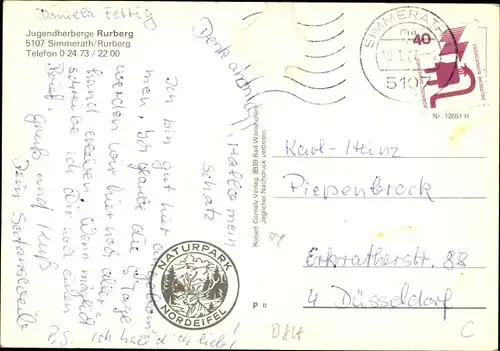 Daniela Fettig
Jugendherberge Rurberg
5107 Simmerath/Rurberg
Telefon 0 24 73 / 22 00
Denk an mich!
Hallo mein
Schatz
Ich bin gut hier angekom-
men, ich glaube die 5 Tage
werden wir hier noch aller-
hand erleben. Wenn möglich
schreibe ich Dir noch einen
Brief. Gruß und Kuß
Dein Satansweib
P.S. ich hab' dich lieb!
NATURPARK
NORDEIFEL
Robert Cornely Verlag, 8939 Bad Wörishofen
Jeglicher Nachdruck verboten.
P B
SIMMERATH
5107
40
DEUTSCHE BUNDESPOST
Nr. 12651 H
Karl-Heinz
Piepenbrock
Erkratherstr. 88
4 Düsseldorf
C